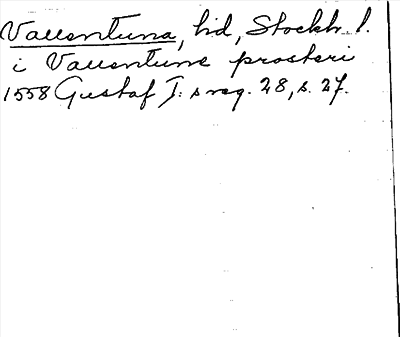 Vallentuna, hd, Stockh. l.
i Vallentuna prosteri
1558 Gustaf I:s reg. 28, s. 27.